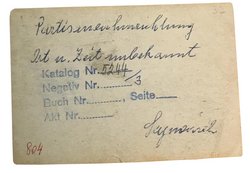 Ort u. Zeit unbekannt
Katalog Nr. 5244
Negativ Nr. /3
Buch Nr. , Seite
Akt Nr.
804